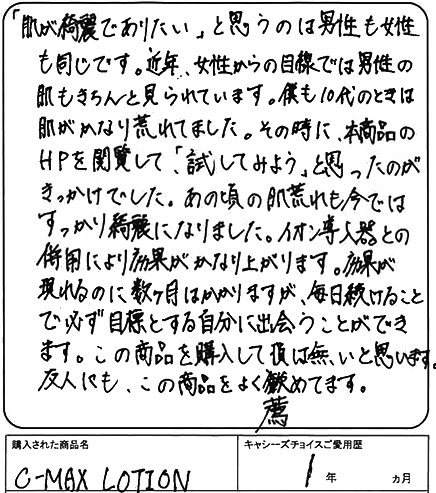 「肌が綺麗でありたい」と思うのは男性も女性
も同じです。近年、女性からの目線では男性の
肌もきちんと見られています。僕も10代のときは
肌がかなり荒れてました。その時に、本商品の
HPを閲覧して、「試してみよう」と思ったのが
きっかけでした。あの頃の肌荒れも今では
すっかり綺麗になりました。イオン導入器との
併用により効果がかなり上がります。効果が
現れるのに数ヶ月はかかりますが、毎日続けること
で必ず目標とする自分に出会うことができ
ます。この商品を購入して損は無いと思います。
友人にも、この商品をよく勧めてます。
薦
購入された商品名
キャシーズチョイスご愛用歴
C-MAX LOTION
1年 ヵ月